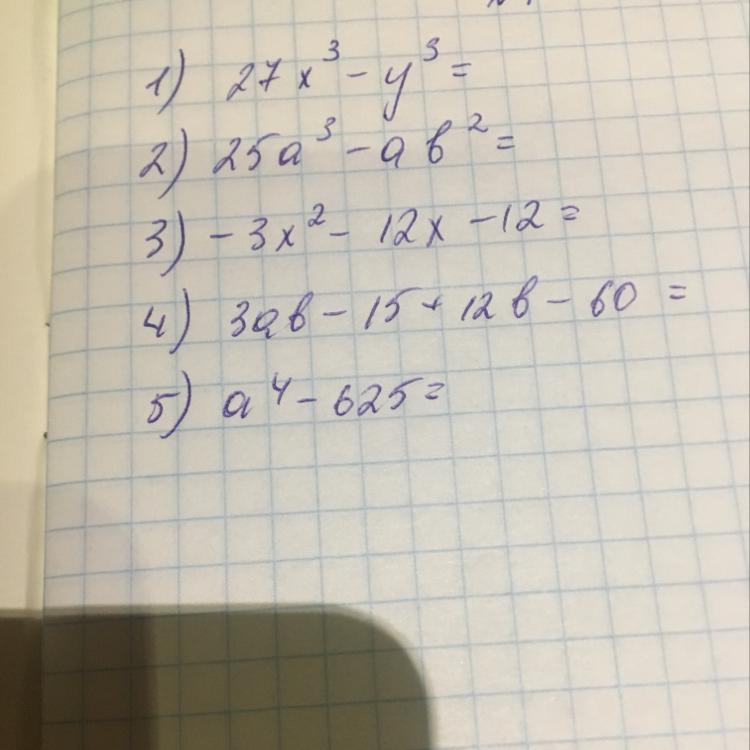 1) 27x³ - y³ =
2) 25a³ - ab² =
3) -3x² - 12x - 12 =
4) 3ab - 15 + 12b - 60 =
5) a⁴ - 625 =